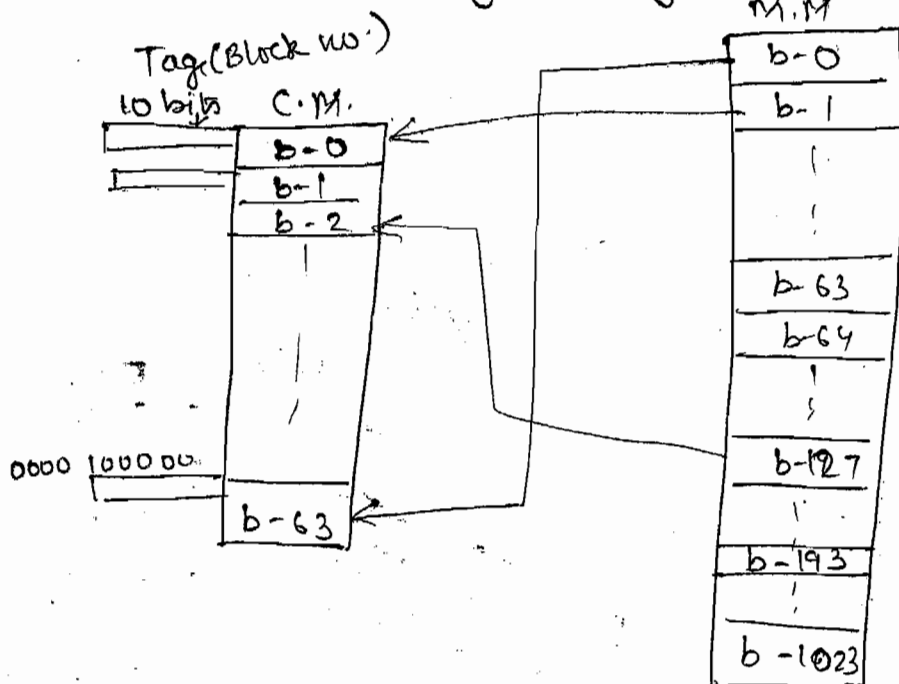 M.M
Tag (Block no.)
10 bits
C.M.
b-0
b-1
b-2
0000 100000
b-63
b-0
b-1
b-63
b-64
b-127
b-193
b-1023